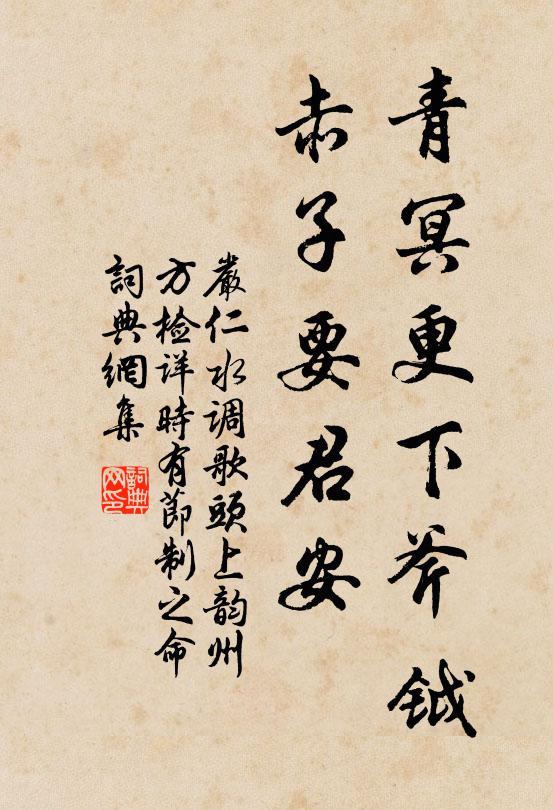 青冥更下斧鉞
赤子要君安
嚴仁水调歌頭上韵州
方检详時有節制之命
詞典網集
詞典
网印